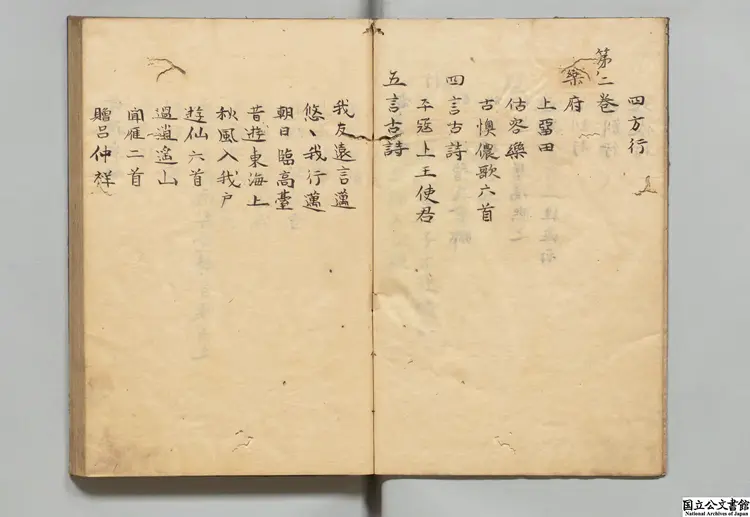 四方行
第二巻
樂府
上畱田
估客樂
古懊儂歌六首
四言古詩
平寇上王使君
五言古詩
我友遠言邁
悠〻我行邁
朝日臨高臺
昔遊東海上
秋風入我户
遊仙六首
過逍遙山
聞雁二首
贈呂仲祥
国立公文書館
National Archives of Japan